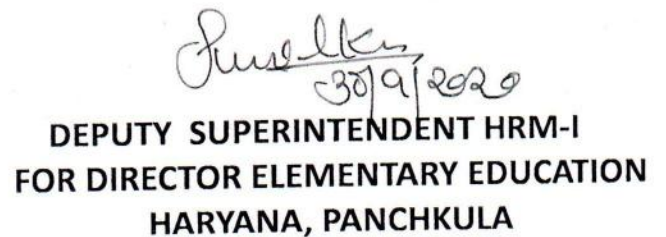 30/9/2020
DEPUTY SUPERINTENDENT HRM-I
FOR DIRECTOR ELEMENTARY EDUCATION
HARYANA, PANCHKULA